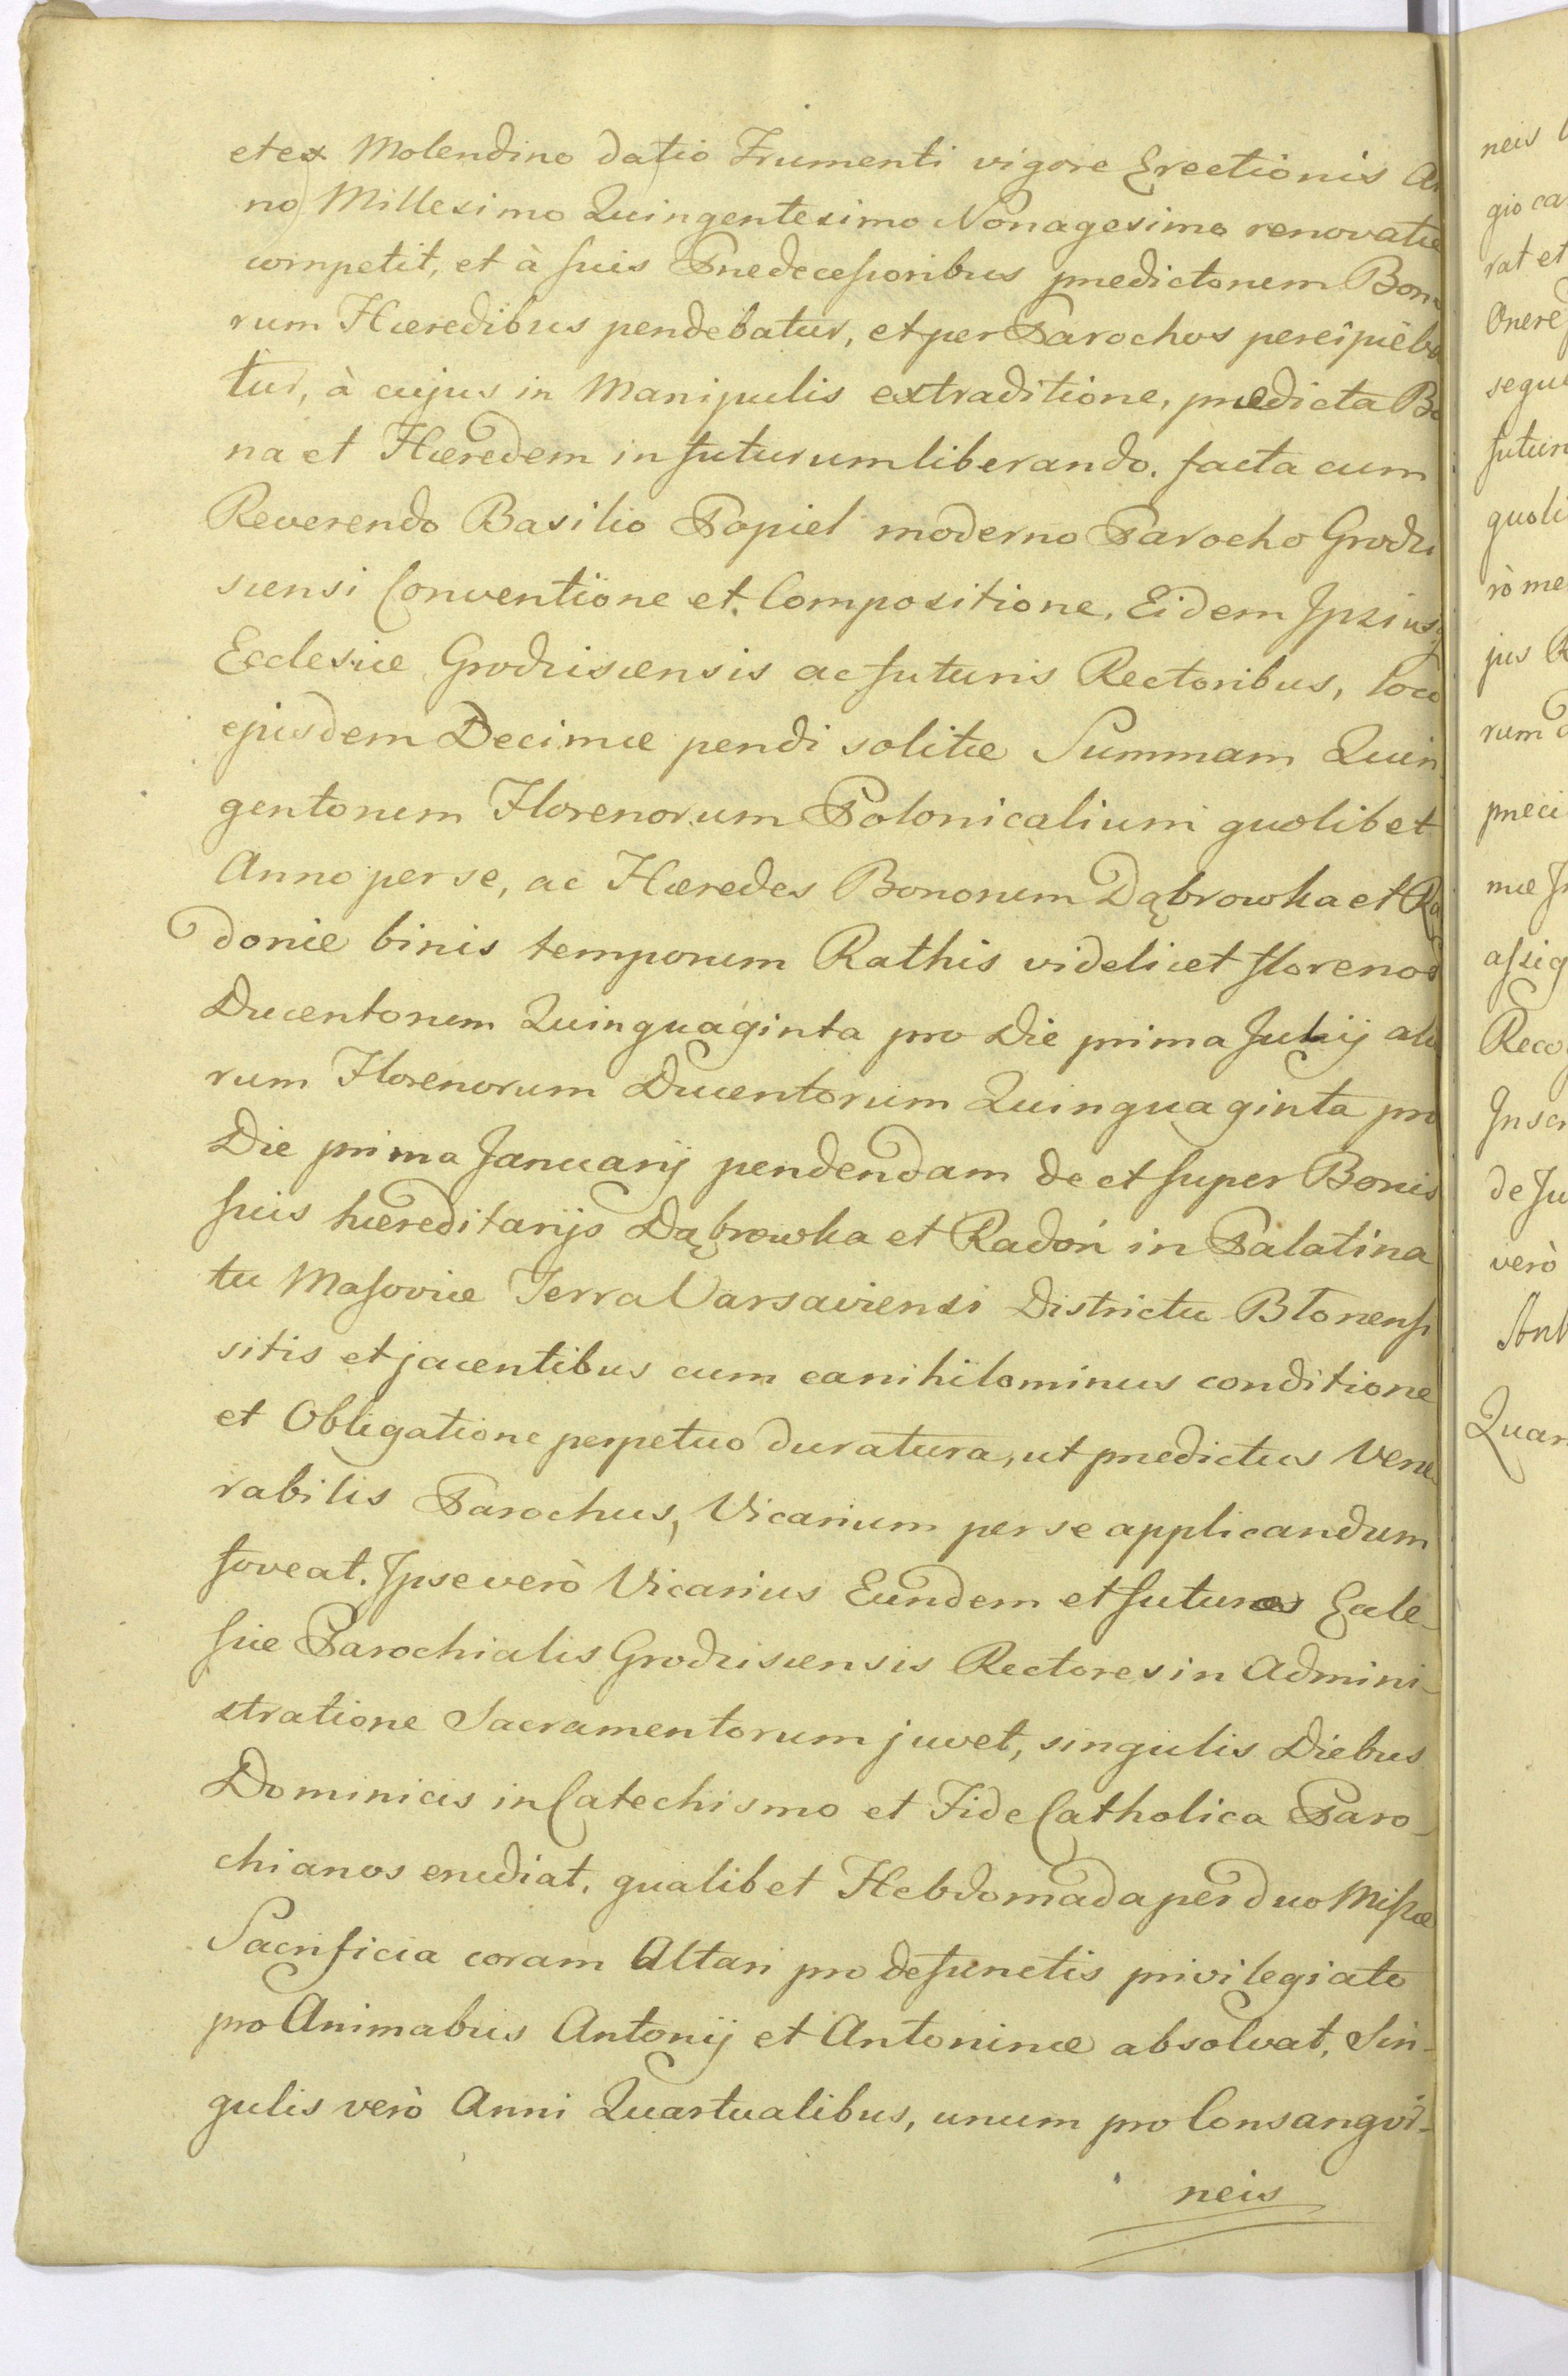 et ex Molendino datio Frumenti vigore Erectionis An
no Millesimo Quingentesimo Nonagesimo renovatæ
competit, et à suis Prædecessoribus prædictorum Bono
rum Hæredibus pendebatur, et per Parochos percipieba
tur, à cujus in Manipulis extraditione, prædicta Bo
na et Hæredem in futurum liberando. facta cum
Reverendo Basilio Popiel moderno Parocho Grodzi
scensi Conventione et Compositione, Eidem Ipsiusq
Ecclesiæ Grodziscensis ac futuris Rectoribus, loco
ejusdem Decimæ pendi solitæ Summam Quin
gentorum Florenorum Polonicalium quolibet
Anno per se, ac Hæredes Bonorum Dąbrowka et Ra
doniæ binis temporum Rathis videlicet florenos
Ducentorum Quinquaginta pro Die prima Julij alio
rum Florenorum Ducentorum Quinquaginta pro
Die prima Januarij pendendam de et super Bonis
suis hæreditarijs Dąbrowka et Radoń in Palatina
tu Masoviæ Terra Varsaviensi Districtu Błonensi
sitis et jacentibus cum ea nihilominus conditione
et Obligatione perpetuo duratura, ut prædictus Vene
rabilis Parochus, Vicarium per se applicandum
foveat. Ipse verò Vicarius Eundem et futuros Eccle-
siæ Parochialis Grodziscensis Rectores in Admini-
stratione Sacramentorum juvet, singulis Diebus
Dominicis in Catechismo et Fide Catholica Paro-
chianos erudiat, qualibet Hebdomada per duo Missæ
Sacrificia coram Altari pro defunctis privilegiato
pro Animabus Antonij et Antoninæ absolvat, Sin-
gulis verò Anni Quartualibus, unum pro Consangvi-
neis
neis
gio ca
rat et
Onere
sequ
futur
quoli
rò me
jus R
rum
præci
mæ
assig
Reco
Inscr
de Ju
verò
Ant
Quar